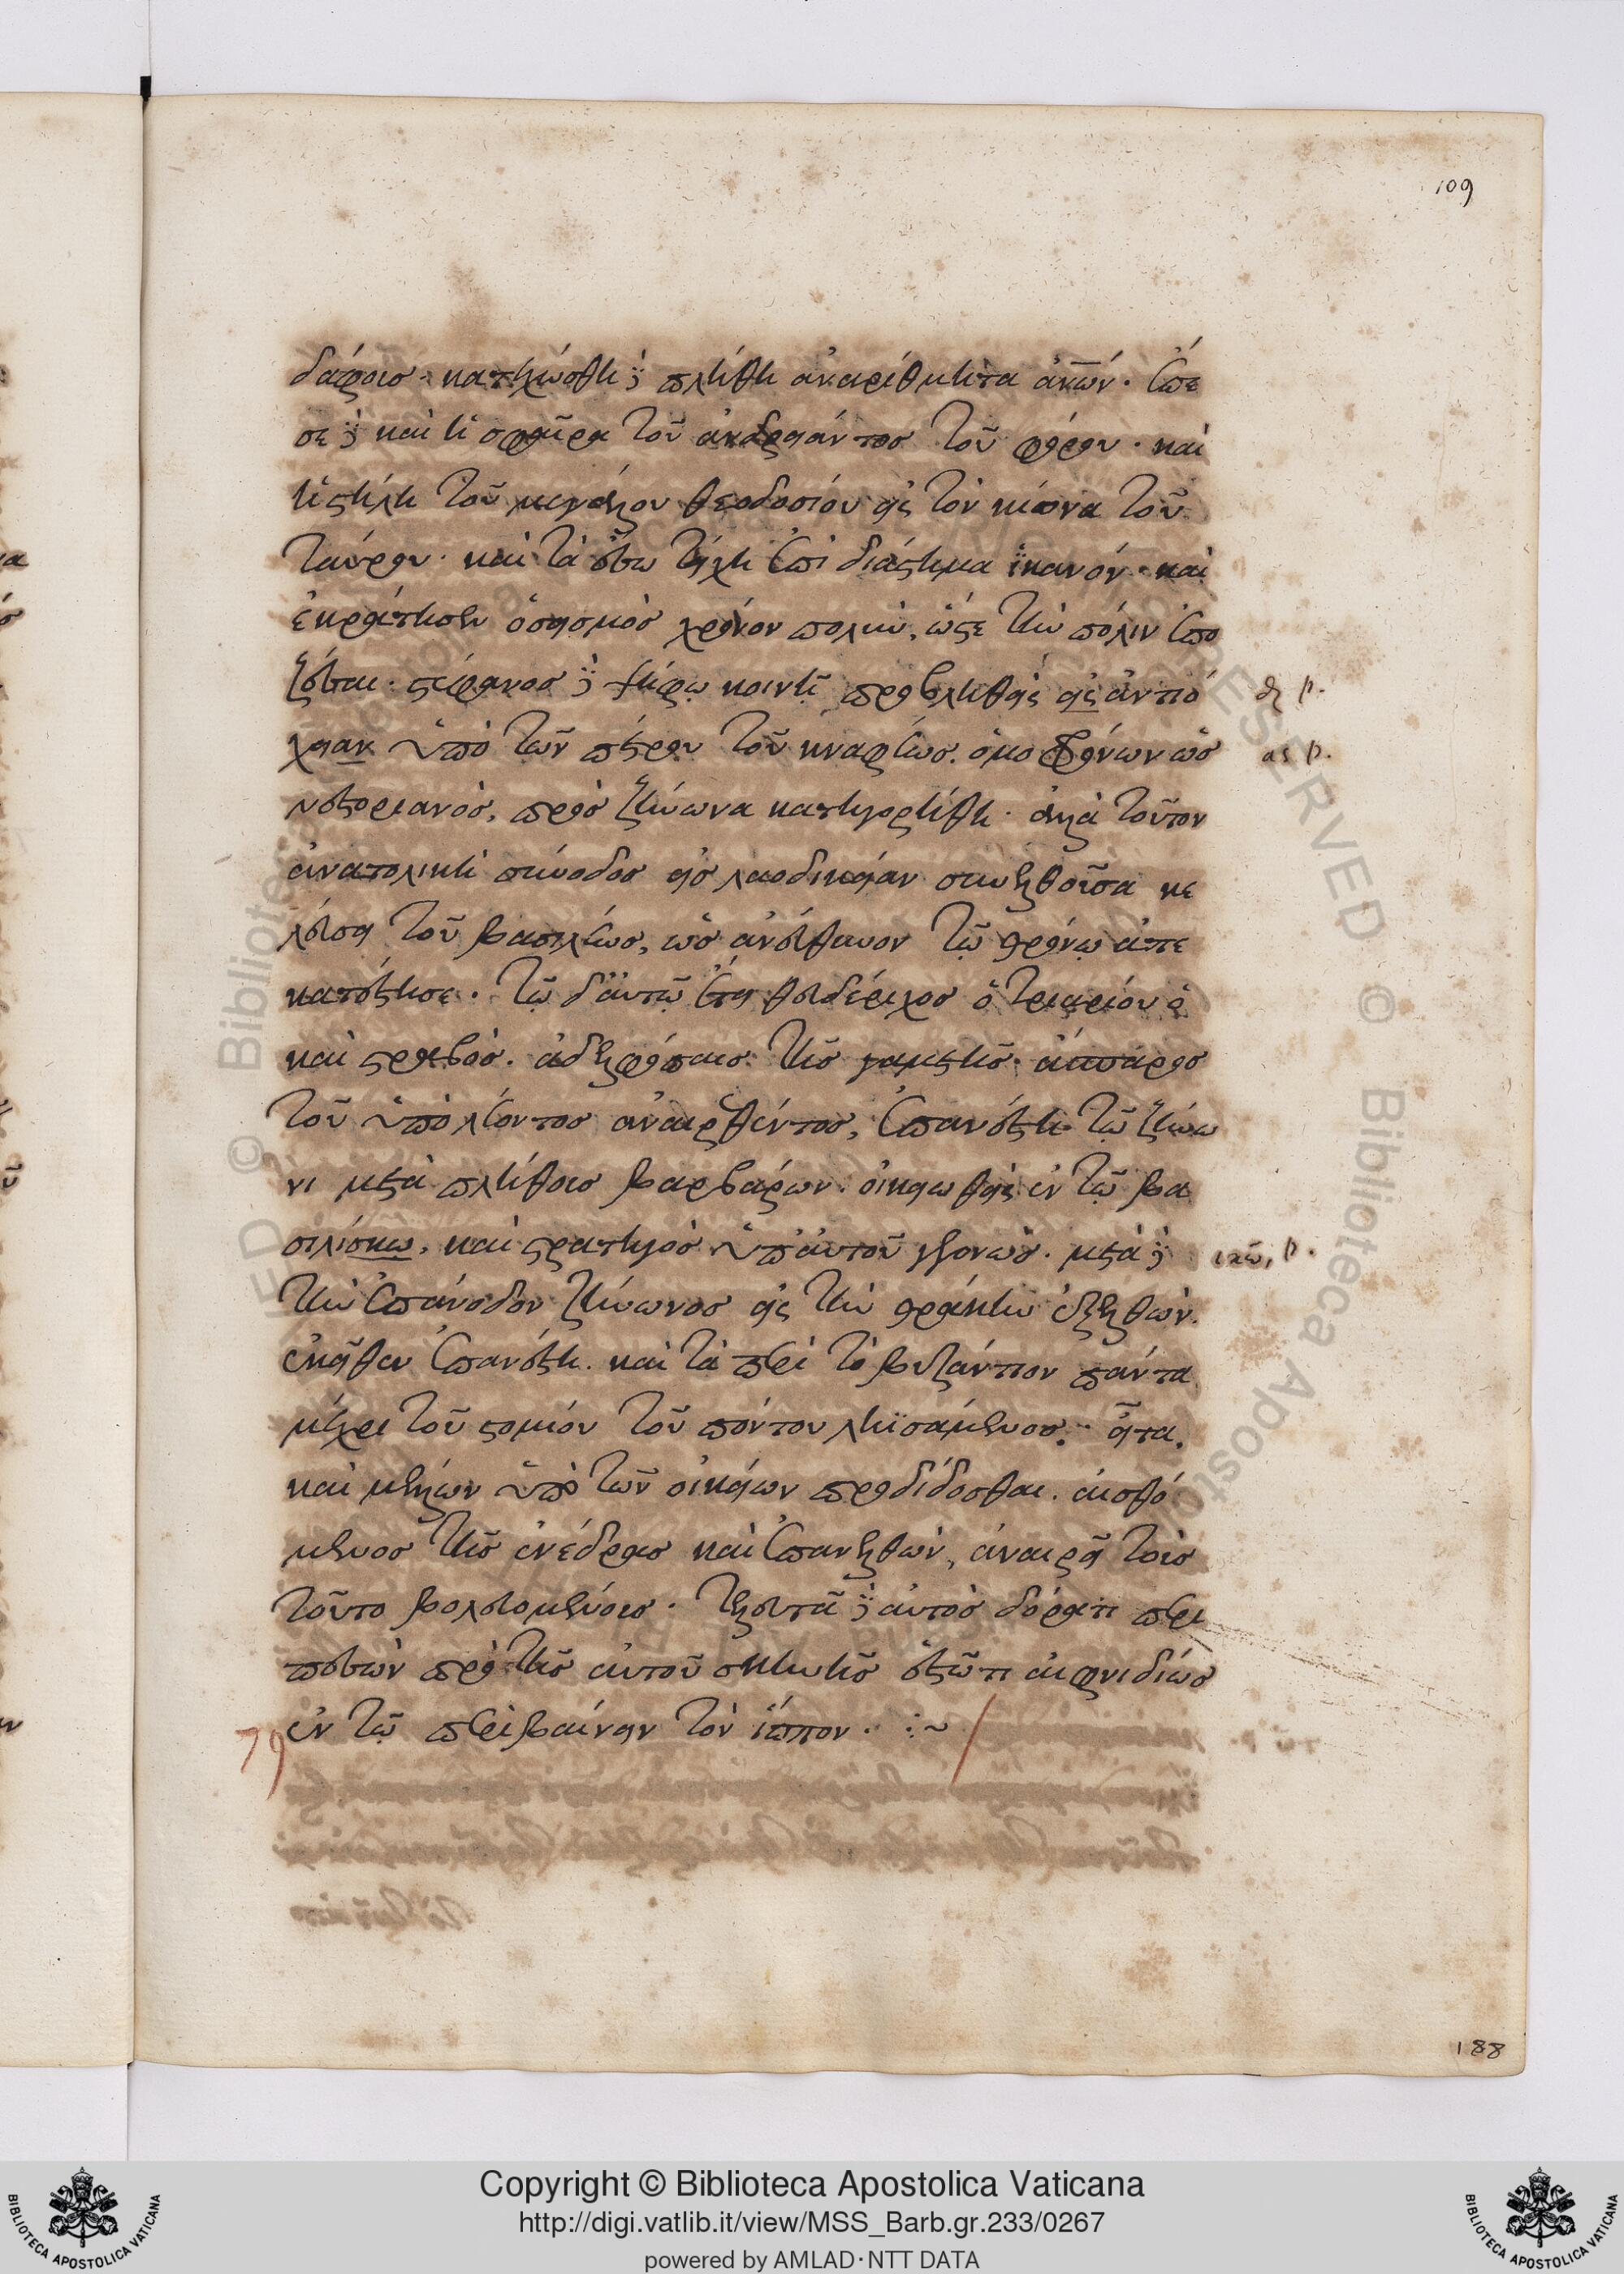 109
δάφους. κατεχώσθη δὲ πλήθη ἀναρίθμητα ἀνων. ἔπε
σε δὲ καὶ ἡ σφαῖρα τοῦ ἀνδριάντος τοῦ φόρου. καὶ
ἡ στήλη τοῦ μεγάλου θεοδοσίου εἰς τὸν κίονα τοῦ
ταύρου. καὶ τὰ ἔσω τείχη ἐπὶ διάστημα ἱκανόν. καὶ
ἐκράτησεν ὁ σεισμὸς χρόνον πολὺν, ὥστε τὴν πόλιν ἐπο
ζέσαι. στέφανος δὲ ψήφω κοινῆ προβληθεὶς εἰς ἀντιό
χειαν ὑπὸ τῶν πέτρου τοῦ κναφέως. ὁμοφρόνων ὡς
νεστοριανὸς, πρὸς ζήνωνα κατηγορήθη. ἀλλὰ τοῦτον
ἀνατολικὴ σύνοδος εἰς λαοδικείαν συνελθοῦσα κε
λεύσει τοῦ βασιλέως, ὡς ἀνεύθυνον τῶ θρόνω ἀπε
κατέστησε. τῶ δ' αὐτῶ ἔτει θευδέριχος ὁ τριαρίου ὁ
καὶ στραβὸς. ἀδελφόπαις τῆς γαμετῆς ἄσπαρος
τοῦ ὑπὸ λέοντος ἀναιρεθέντος, ἐπανέστη τῶ ζήνω
νι μετὰ πλήθους βαρβάρων. οἰκειωθεὶς ἐν τῶ βα
σιλίσκω. καὶ στρατηγὸς ὑπ' αὐτοῦ γεγονὼς. μετὰ δὲ
τὴν ἐπάνοδον ζήνωνος εἰς τὴν θράκην ἐξελθὼν.
ἐκεῖθεν ἐπανέστη. καὶ τὰ περὶ τὸ βυζάντιον πάντα
μέχρι τοῦ στομίου τοῦ πόντου ληϊσάμενος. εἶτα.
καὶ μέλλων ὑπὸ τῶν οἰκείων προδίδοσθαι. αἰσθό
μενος τῆς ἐνέδρας καὶ ἐπανελθὼν, ἀναιρεῖ τοὺς
τοῦτο βουλευομένους. τελευτᾶ δὲ αὐτὸς δόρατι περι
πεσὼν πρὸ τῆς αὐτοῦ σκηνῆς ἑστῶτι αἰφνιδίως
79 ἐν τῶ περιβαίνειν τὸν ἵππον. :~ /
188
Copyright © Biblioteca Apostolica Vaticana
http://digi.vatlib.it/view/MSS_Barb.gr.233/0267
powered by AMLAD·NTT DATA